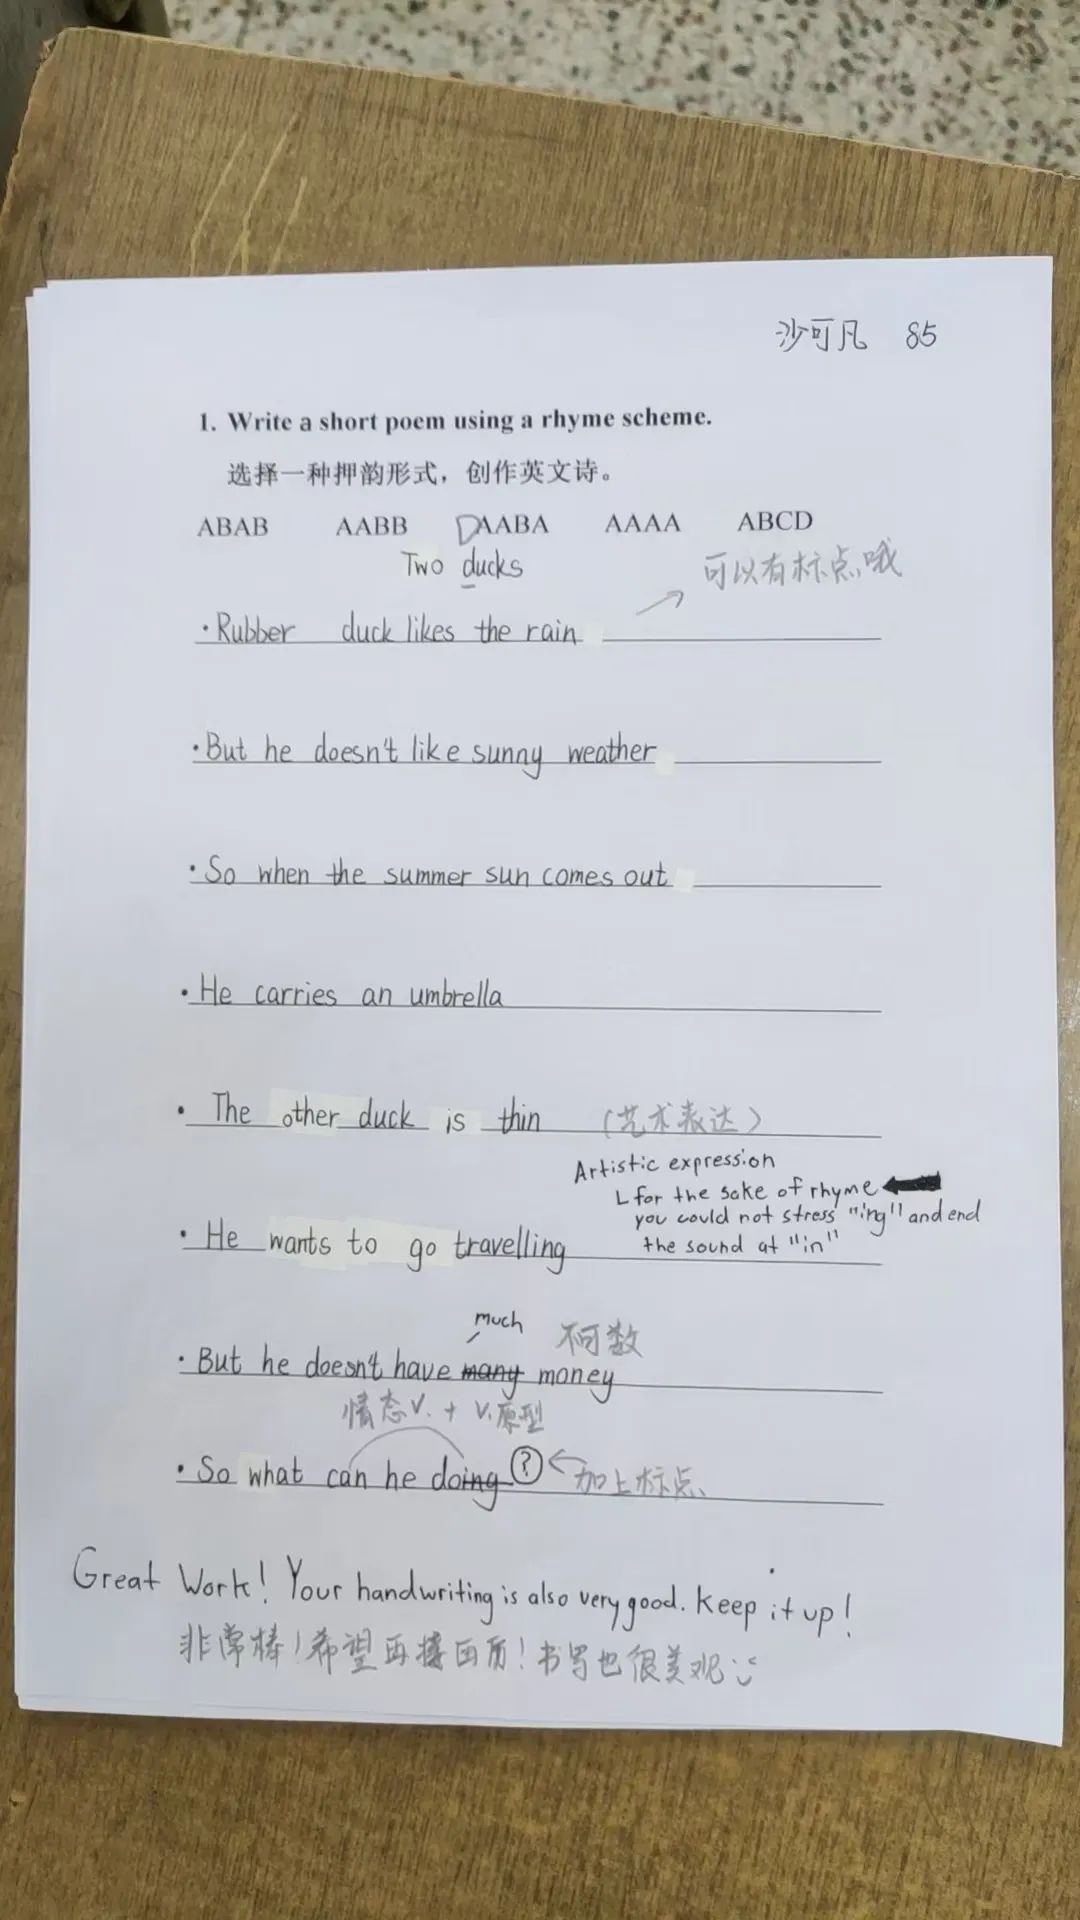 沙可凡 85
1. Write a short poem using a rhyme scheme.
选择一种押韵形式，创作英文诗。
ABAB AABB AABA AAAA ABCD
Two ducks
可以有标点哦
·Rubber duck likes the rain
·But he doesn't like sunny weather
·So when the summer sun comes out
·He carries an umbrella
· The other duck is thin (艺术表达)
Artistic expression
for the sake of rhyme
you could not stress "ing" and end
the sound at "in"
· He wants to go travelling
much 不可数
· But he doesn't have many money
情态V. + V.原型
· So what can he doing ? 加上标点
Great Work! Your handwriting is also very good. Keep it up!
非常棒!希望再接再厉!书写也很美观